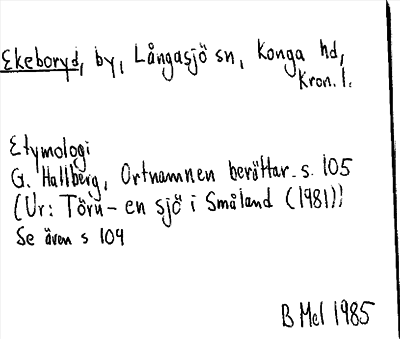 Ekeboryd, by, Långasjö sn, Konga hd,
Kron. l.
Etymologi
G. Hallberg, Ortnamnen berättar. s. 105
(Ur: Törn - en sjö i Småland (1981))
Se även s 104
B Mel 1985